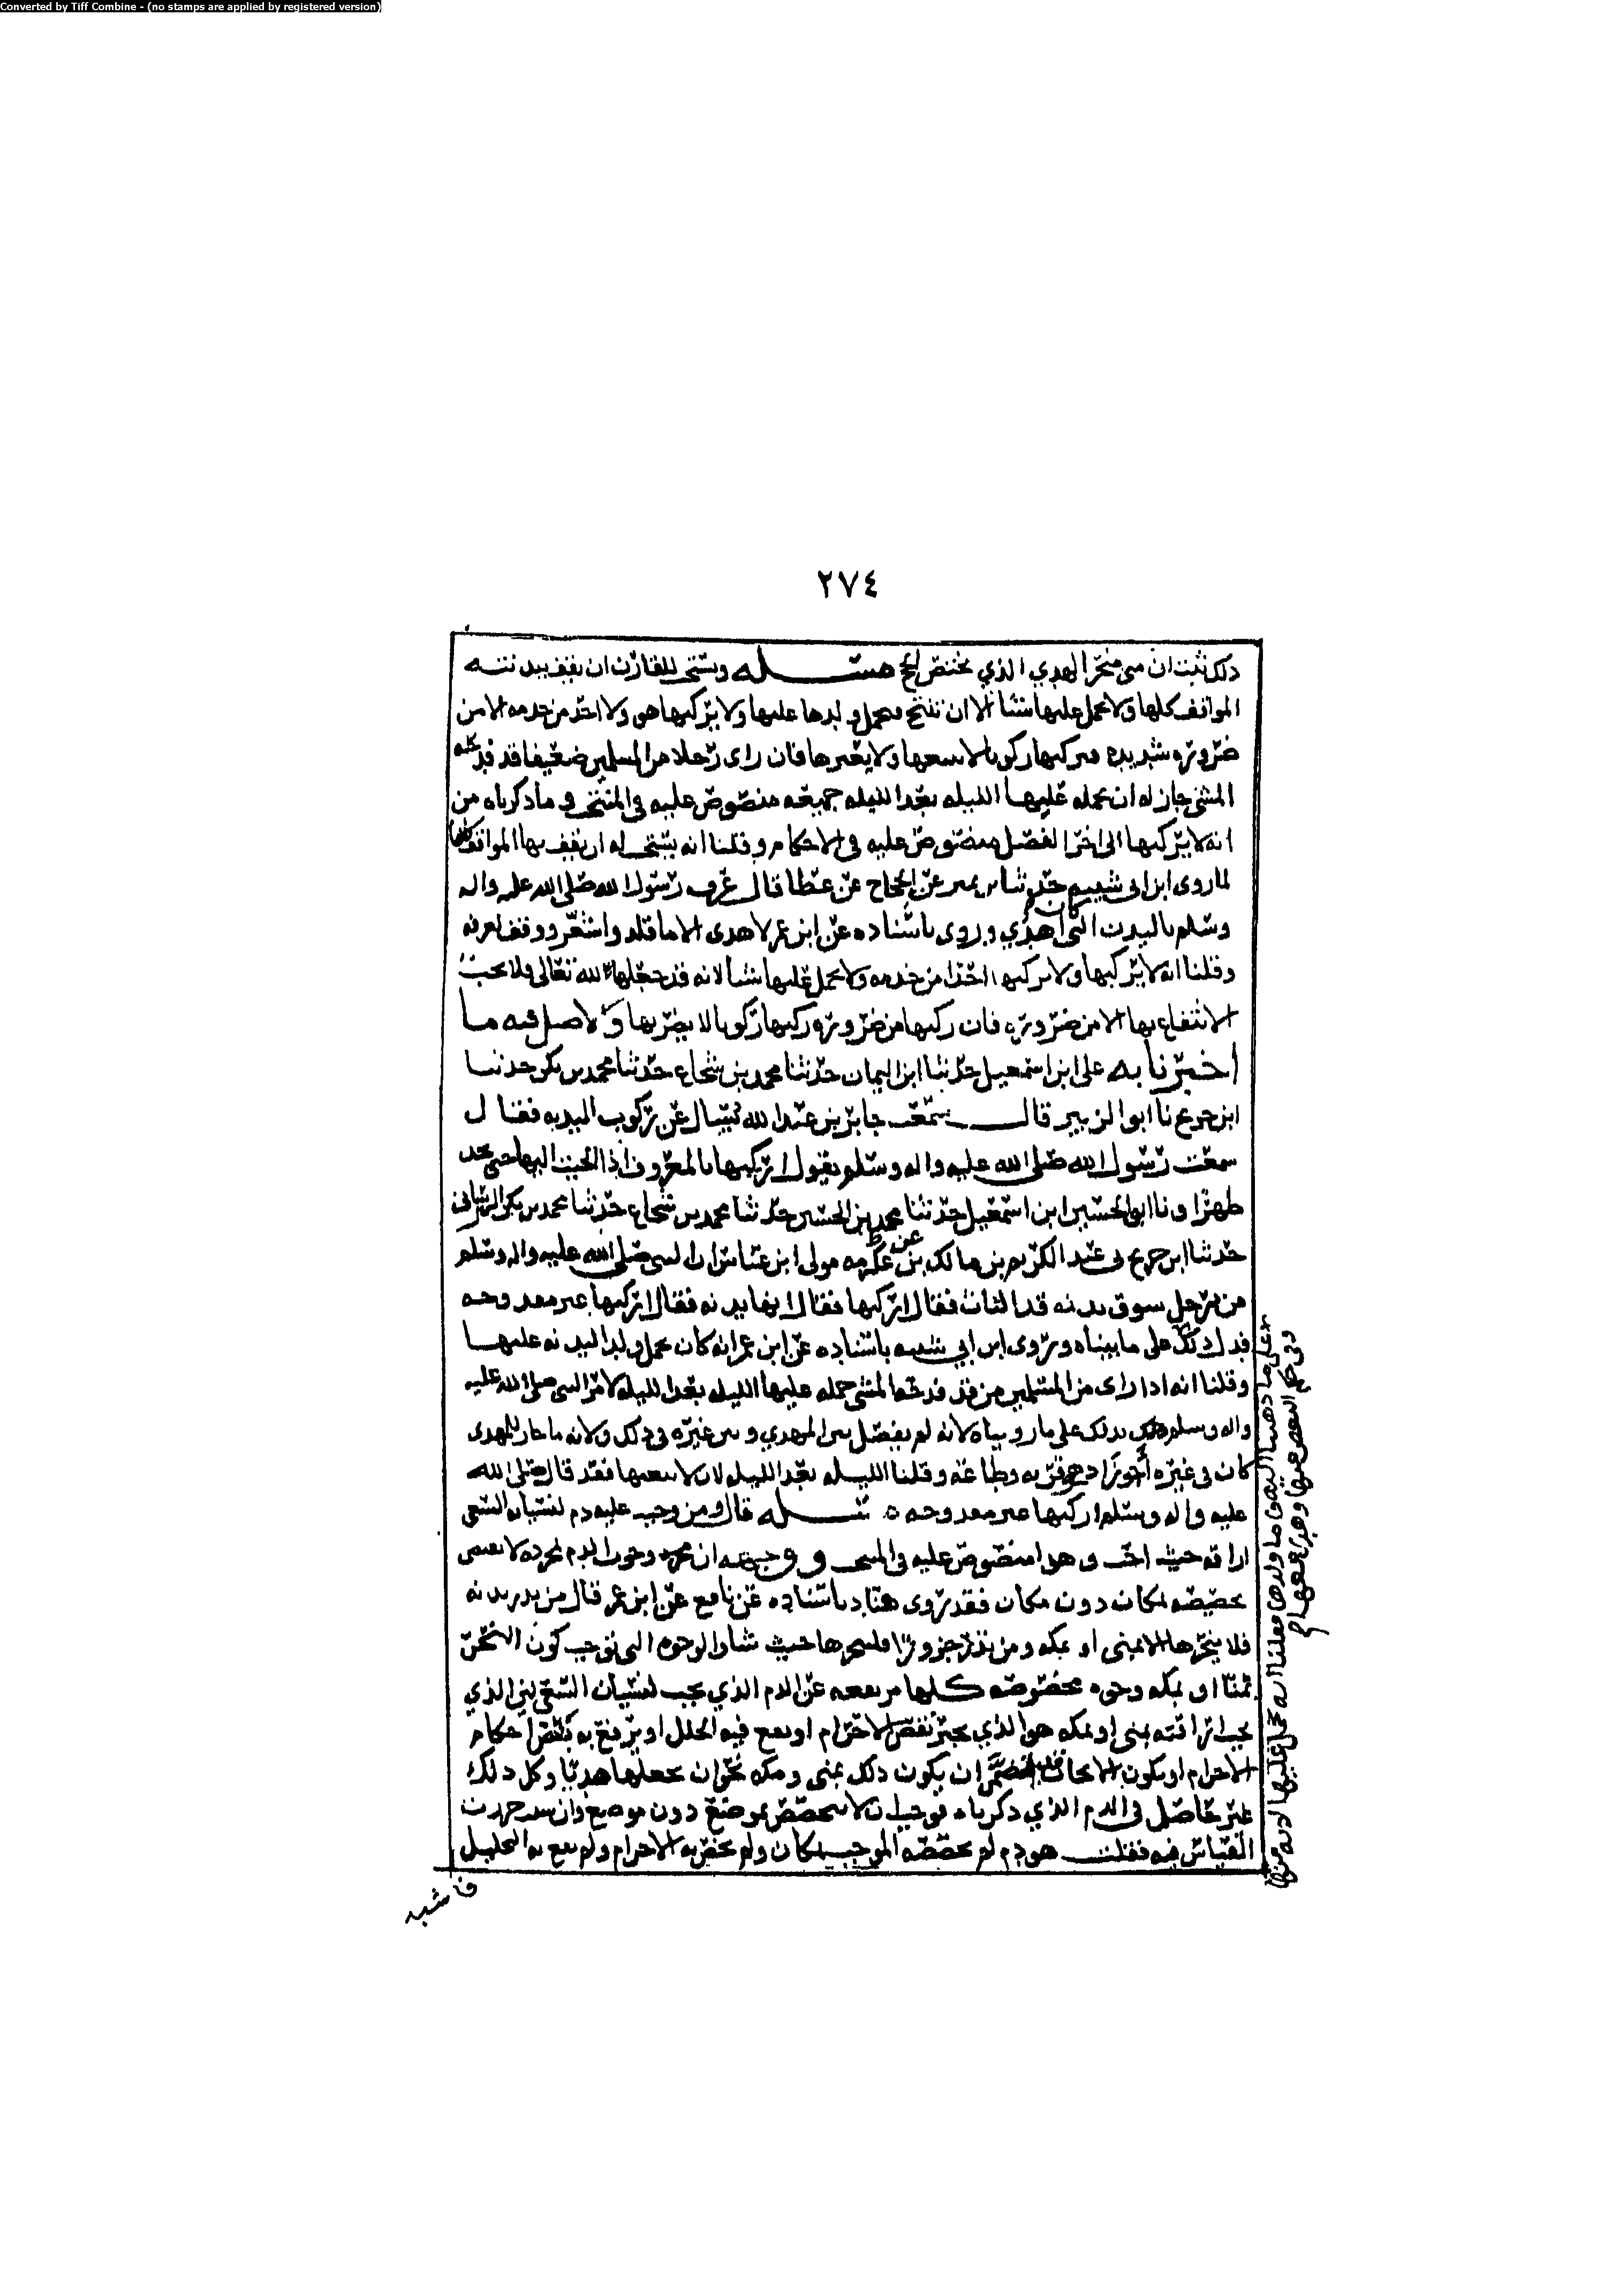 Converted by Tiff Combine - (no stamps are applied by registered version)
٢٧٤
ذلك ثبت ان منى منحر الهدي الذي يختص الحج مسئلة ويستحب للقارن ان يقف ببدنته
المواقف كلها ولا يحمل عليها شيئا الا ان تنتج فيحمل ولدها عليها ولا يركبها هو ولا احد من خدمه الا من
ضرورة شديده فيركبها ركوبا لا يتعبها ولا يعقرها فان راى رجلا من المسلمين ضعيفا قد فدحه
المشي جاز له ان يحمله عليها الليله بعد الليله جميعه منصوص عليه في المنتخب و ما ذكرناه من
انه لا يركبها الى اخر الفصل منصوص عليه في الاحكام وقلنا انه يستحب له ان يقف بها المواقف كلها
لما روى ابن ابي شيبه حدثنا ابن نمير عن الحجاج عن عطا قال عرف رسول الله صلى الله عليه واله
وسلم بالبدن التي كان اهدى وروى باسناده عن ابن عمر لا هدى الا ما قلد واشعر ووقف بعرفه
وقلنا انه لا يركبها ولا يركبها احدا من خدمه ولا يحمل عليها شيا لانه قد جعلها لله تعالى فلا يجب
الانتفاع بها الا من ضرورة فان ركبها من ضرورة ركبها ركوبا لا يضر بها والاصل فيه ما
اخبرنا به علي ابن اسمعيل حدثنا ابن اليمان حدثنا محمد بن شجاع حدثنا محمد بن بكر حدثنا
ابن جريج نا ابو الزبير قال سمعت جابر بن عبد الله يسال عن ركوب البدنه فقال
سمعت رسول الله صلى الله عليه واله وسلم يقول اركبها بالمعروف اذا الجيت اليها حتى تجد
ظهرا و نا ابو الحسين ابن اسمعيل حدثنا محمد بن الحسين حدثنا محمد بن شجاع حدثنا محمد بن بكر البرساني
حدثنا ابن جريج نى عبد الكريم بن مالك عن عكرمه مولى ابن عباس ان النبي صلى الله عليه واله وسلم
من برجل يسوق بدنه قد فقال اركبها فقال انها بدنه فقال اركبها غير مفدوحه
فدل ذلك على ما بيناه وروى ابن ابي شيبه باسناده عن ابن عمر انه كان يحمل ولد البدنه عليها
وقلنا انه اذا راى من المسلمين من قد فدحه المشي حمله عليها الليله بعد الليله لامر النبي صلى الله عليه
واله وسلم بذلك على ما رويناه لانه لم يفصل بين المهدي وبين غيره في ذلك ولانه ما جاز للمهدى
كان في غيره اجوز اذ هو قربه وطاعة وقلنا الليله بعد الليله لان لا يتعبها فقد قال صلى الله
عليه واله وسلم اركبها غير مفدوحه مسئلة قال ومن وجب عليه دم لنسيان السعي
اراقه حيث احب وهذا منصوص عليه في المنتخب ووجهه ان مجرد وجوب الدم بمجرده لا يقتضي
تخصيصه بمكان دون مكان فقد روى هناد باسناده عن نافع عن ابن عمر قال من نذر بدنه
فلا ينحرها الا بمنى او بمكه ومن نذر جزورا فلينحرها حيث شاء والوجوه التي توجب كون النحر
بمنا او بمكه وجوه مخصوصه كلها مرتفعه عن الدم الذي يجب لنسيان السعي لان الذي
يجب اراقته بمنى او بمكه هو الذي يجبر نقص الاحرام او يقع فيه الخلل او يرتفع به بعض احكام
الاحرام او يكون الايجاب ان يكون ذلك بمنى و مكه نحو ان يجعلها هديا وكل ذلك
غير حاصل في الدم الذي ذكرناه فوجب ان لا يتخصص بموضع دون موضع وان شئت حررت
القياس فيه فقلت هو دم لم يخصصه الموجب بمكان ولم يختص به الاحرام ولم يقع به التحليل
فاشبه